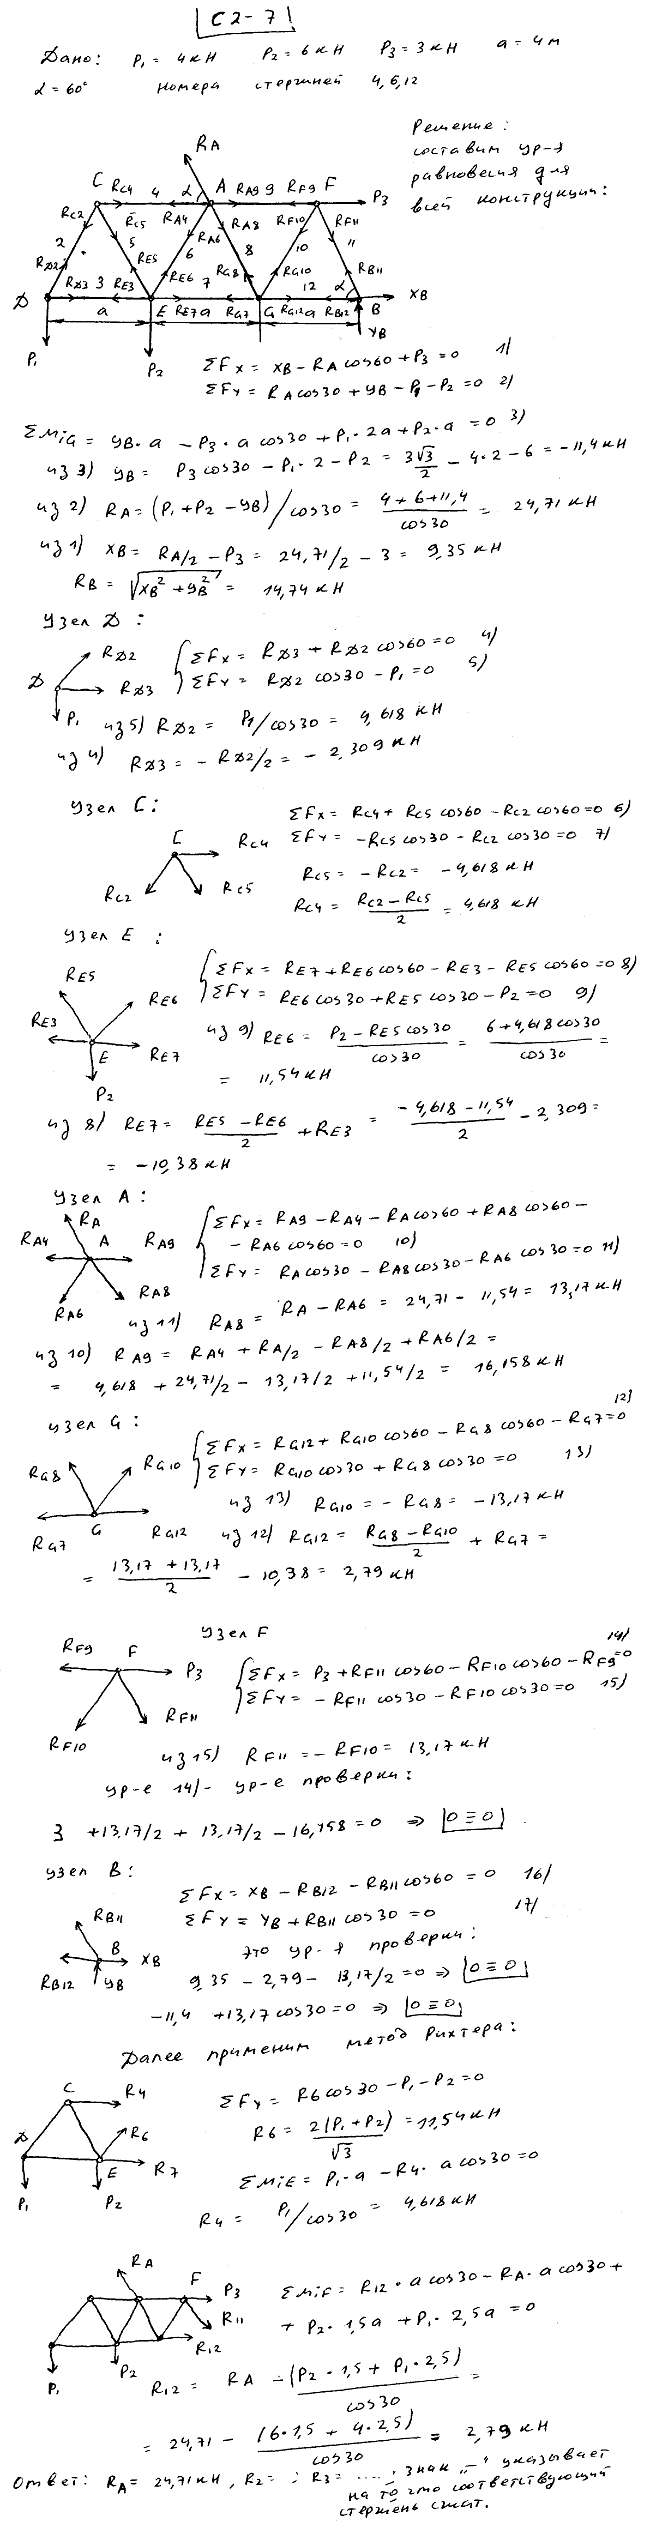 С2-7
Дано: P₁ = 4кН P₂ = 6кН P₃ = 3кН a = 4м
α = 60° номера стержней 4, 6, 12
Решение:
составим ур-я
равновесия для
всей конструкции:
RA
C RC4 4 α A RA9 9 RF9 F P3
RC2 RC5 RA4 RA6 RA8 RF10 RF11
2 5 6 8 10 11
RD2 RE5 RE6 7 RG8 RG10 12 α RB11
D RD3 3 RE3 B XB
a E RE7 a RG7 G RG12 a RB12 YB
P1 P2
ΣFx = XB - RA cos60 + P3 = 0 1)
ΣFY = RA cos30 + YB - P1 - P2 = 0 2)
ΣMiG = YB · a - P3 · a cos30 + P1 · 2a + P2 · a = 0 3)
из 3) YB = P3 cos30 - P1 · 2 - P2 = 3√3/2 - 4·2 - 6 = -11,4 кН
из 2) RA = (P1 + P2 - YB) / cos30 = 4 + 6 + 11,4 / cos30 = 24,71 кН
из 1) XB = RA/2 - P3 = 24,71/2 - 3 = 9,35 кН
RB = √XB² + YB² = 14,74 кН
Узел D :
RD2
D RD3
P1
ΣFx = RD3 + RD2 cos60 = 0 4)
ΣFY = RD2 cos30 - P1 = 0 5)
из 5) RD2 = P1/cos30 = 4,618 кН
из 4) RD3 = - RD2/2 = - 2,309 кН
Узел C:
C RC4
RC2 RC5
ΣFx = RC4 + RC5 cos60 - RC2 cos60 = 0 6)
ΣFY = -RC5 cos30 - RC2 cos30 = 0 7)
RC5 = -RC2 = -4,618 кН
RC4 = RC2 - RC5 / 2 = 4,618 кН
Узел E :
RE5 RE6
RE3 E RE7
P2
ΣFx = RE7 + RE6 cos60 - RE3 - RE5 cos60 = 0 8)
ΣFY = RE6 cos30 + RE5 cos30 - P2 = 0 9)
из 9) RE6 = P2 - RE5 cos30 / cos30 = 6 + 4,618 cos30 / cos30 =
= 11,54 кН
из 8) RE7 = RE5 - RE6 / 2 + RE3 = -4,618 - 11,54 / 2 - 2,309 =
= -10,38 кН
Узел A :
RA
RA4 A RA9
RA6 RA8
ΣFx = RA9 - RA4 - RA cos60 + RA8 cos60 -
- RA6 cos60 = 0 10)
ΣFY = RA cos30 - RA8 cos30 - RA6 cos30 = 0 11)
из 11) RA8 = RA - RA6 = 24,71 - 11,54 = 13,17 кН
из 10) RA9 = RA4 + RA/2 - RA8/2 + RA6/2 =
= 4,618 + 24,71/2 - 13,17/2 + 11,54/2 = 16,158 кН
Узел G :
RG8 RG10
RG7 G RG12
ΣFx = RG12 + RG10 cos60 - RG8 cos60 - RG7 = 0 12)
ΣFY = RG10 cos30 + RG8 cos30 = 0 13)
из 13) RG10 = - RG8 = -13,17 кН
из 12) RG12 = RG8 - RG10 / 2 + RG7 =
= 13,17 + 13,17 / 2 - 10,38 = 2,79 кН
Узел F
RF9 F P3
RF10 RF11
ΣFx = P3 + RF11 cos60 - RF10 cos60 - RF9 = 0 14)
ΣFY = - RF11 cos30 - RF10 cos30 = 0 15)
из 15) RF11 = - RF10 = 13,17 кН
ур-е 14)- ур-е проверки:
3 + 13,17/2 + 13,17/2 - 16,158 = 0 ⇒ 0 ≡ 0
Узел B :
RB11
RB12 B XB
YB
ΣFx = XB - RB12 - RB11 cos60 = 0 16)
ΣFY = YB + RB11 cos30 = 0 17)
это ур-я проверки:
9,35 - 2,79 - 13,17/2 = 0 ⇒ 0 ≡ 0
-11,4 + 13,17 cos30 = 0 ⇒ 0 ≡ 0
Далее применим метод Рихтера:
C R4
D R6
E R7
P1 P2
ΣFY = R6 cos30 - P1 - P2 = 0
R6 = 2(P1 + P2) / √3 = 11,54 кН
ΣMiE = P1 · a - R4 · a cos30 = 0
R4 = P1/cos30 = 4,618 кН
RA
F P3
R11
R12
P1 P2
ΣMiF = R12 · a cos30 - RA · a cos30 +
+ P2 · 1,5a + P1 · 2,5a = 0
R12 = RA - (P2 · 1,5 + P1 · 2,5) / cos30 =
= 24,71 - (6·1,5 + 4·2,5) / cos30 = 2,79 кН
Ответ: RA = 24,71 кН, R2 = ; R3 = ...., знак „-“ указывает
на то что соответствующий
стержень сжат.